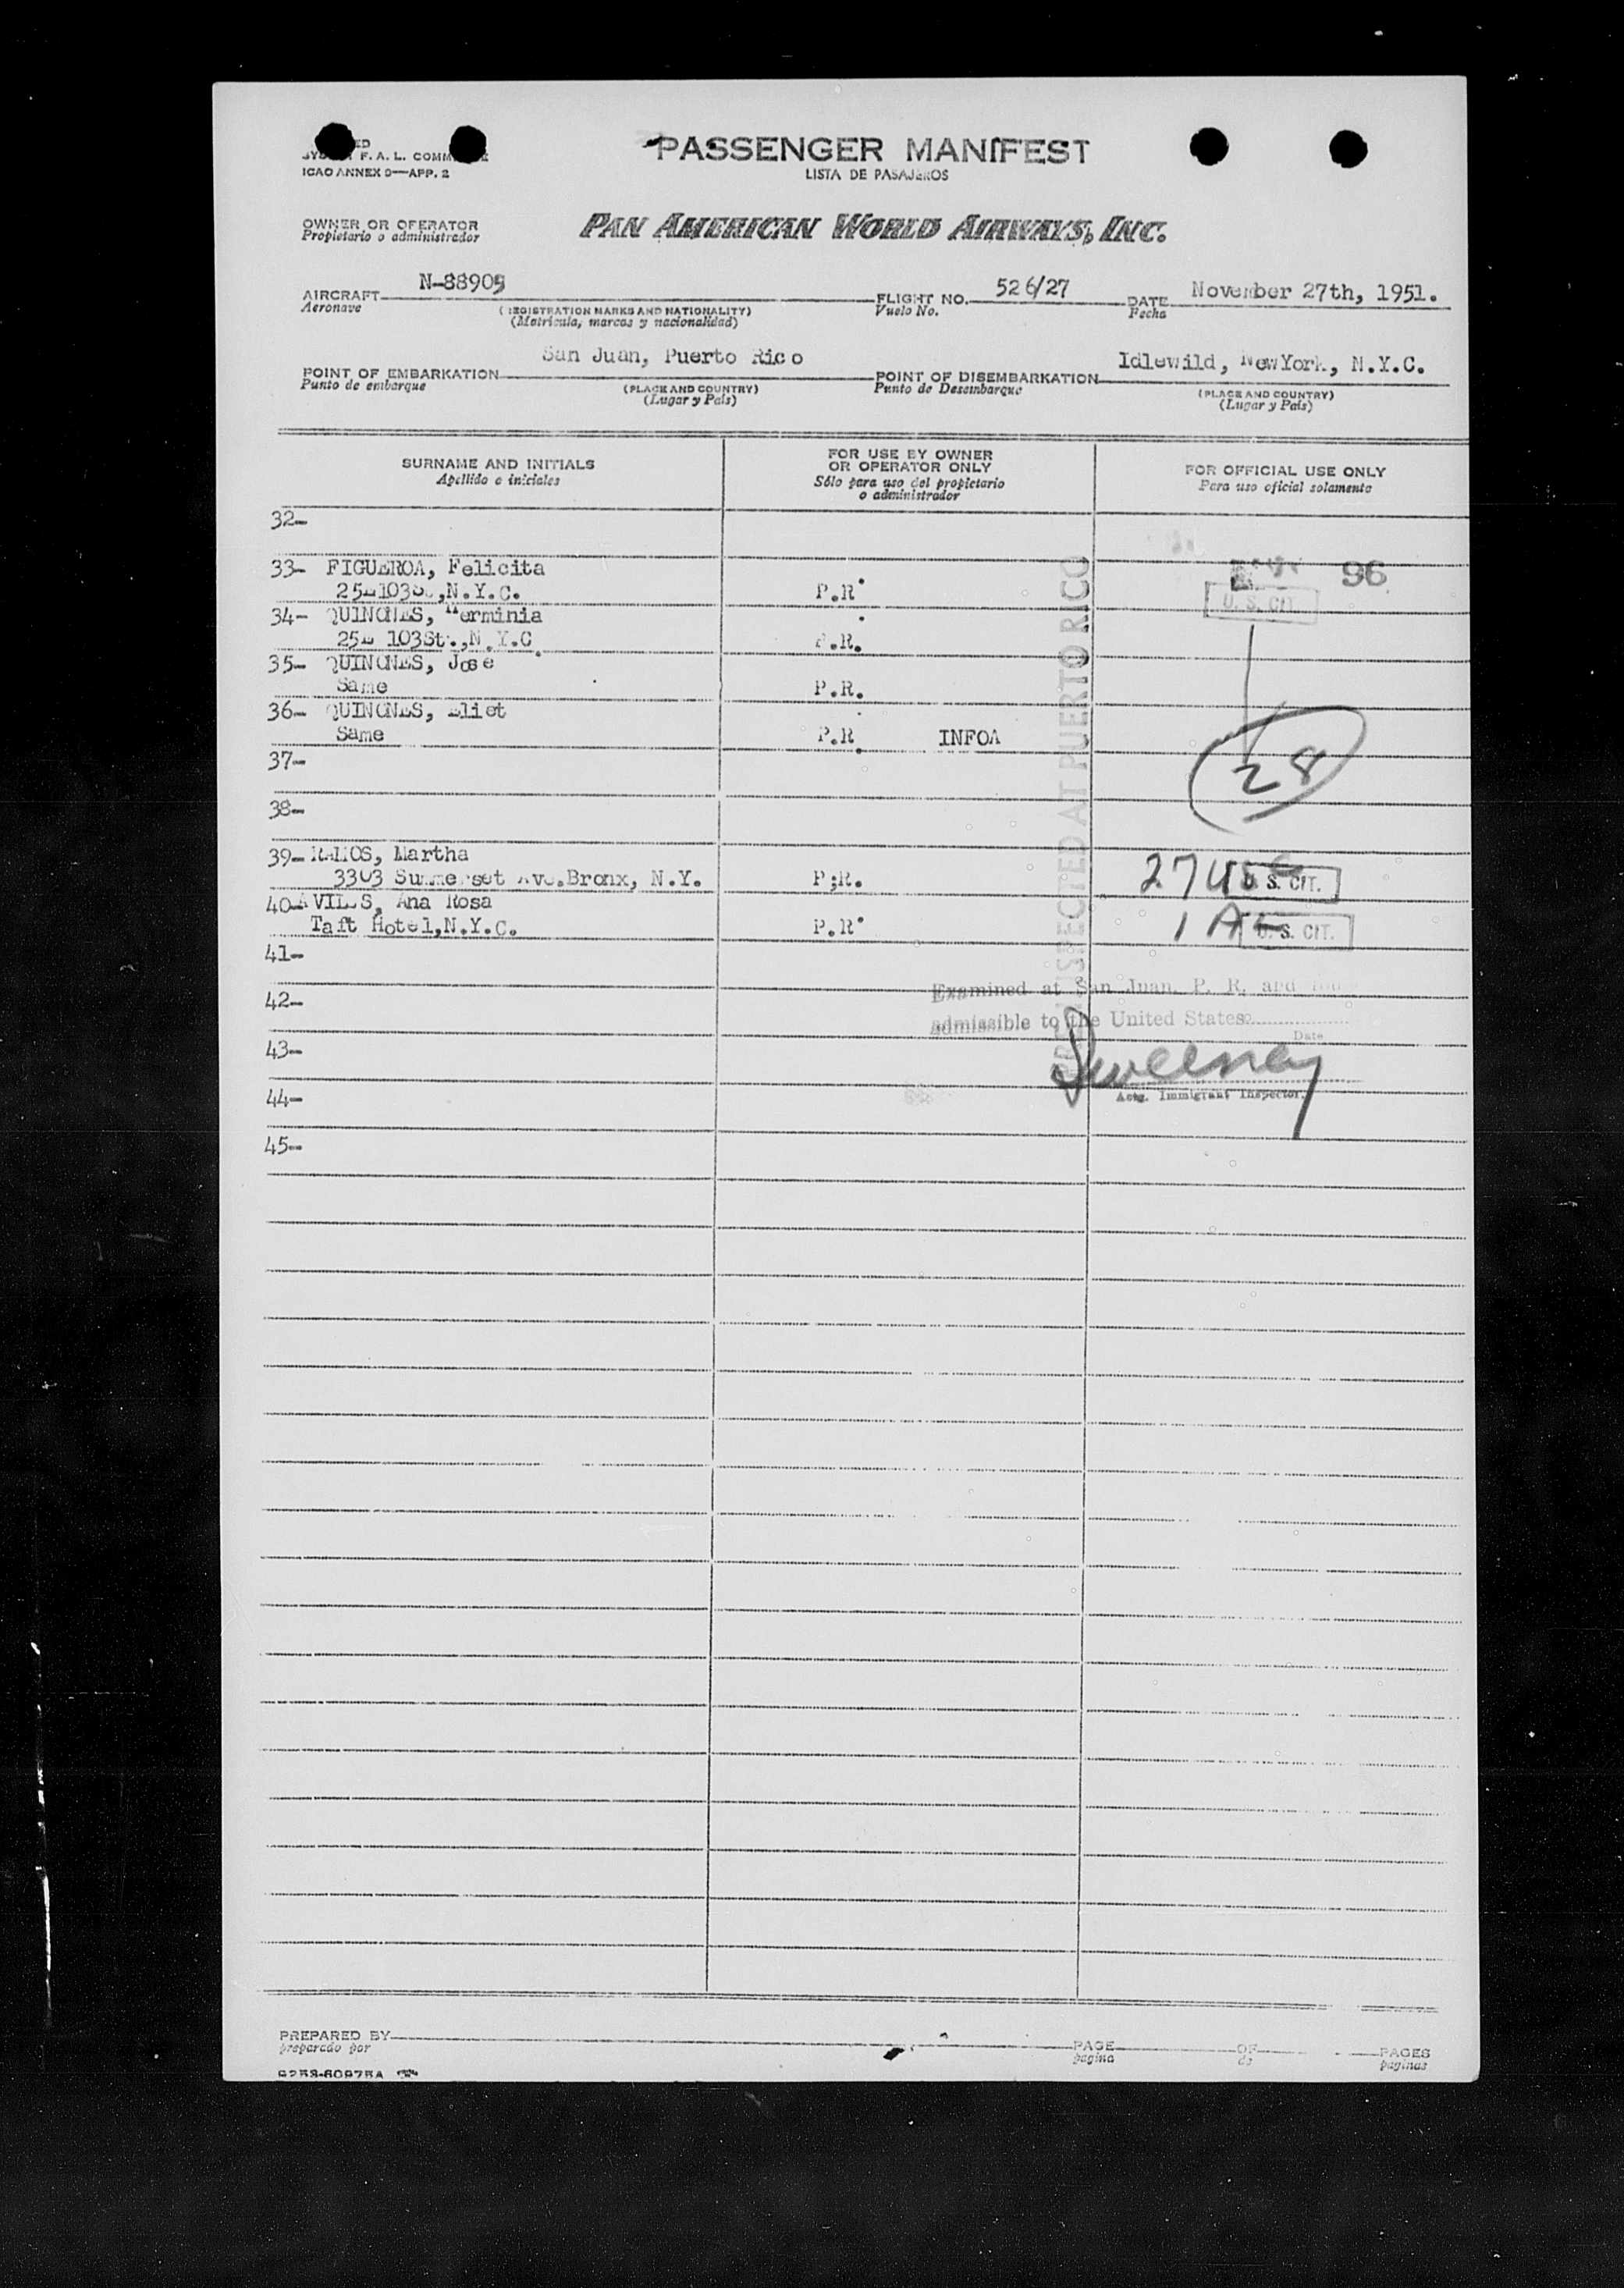 F. A. L.
PASSENGER MANIFEST
ICAO ANNEX 9—APP. 2
LISTA DE PASAJEROS
OWNER OR OPERATOR
Propietario o administrador
PAN AMERICAN WORLD AIRWAYS, INC.
AIRCRAFT N-88905 FLIGHT NO. 526/27 DATE November 27th, 1951.
Aeronave (REGISTRATION MARKS AND NATIONALITY) Vuelo No. Fecha
(Matrícula, marcas y nacionalidad)
POINT OF EMBARKATION San Juan, Puerto Rico POINT OF DISEMBARKATION Idlewild, NewYork, N.Y.C.
Punto de embarque (PLACE AND COUNTRY) Punto de Desembarque (PLACE AND COUNTRY)
(Lugar y País) (Lugar y País)
SURNAME AND INITIALS FOR USE BY OWNER OR OPERATOR ONLY FOR OFFICIAL USE ONLY
Apellido e iniciales Sólo para uso del propietario o administrador Para uso oficial solamente
32-
33- FIGUEROA, Felicita 96
25E103St.,N.Y.C. P.R. U. S. CIT.
34- QUINONES, Herminia
25E 103St.,N.Y.C. P.R.
35- QUINONES, Jose
Same P.R.
36- QUINONES, Eliet
Same P.R. INFOA
37- 28
38-
39- RAMOS, Martha
3303 Summerset Ave.Bronx, N.Y. P;R. 27 USC U. S. CIT.
40- AVILES, Ana Rosa
Taft Hotel,N.Y.C. P.R. 1 A U. S. CIT.
41-
Examined at San Juan, P. R. and
42-
admissible to the United States
Date
43-
Sweeney
44- Actg. Immigrant Inspector.
45-
INSPECTED AT PUERTO RICO
PREPARED BY PAGE OF PAGES
preparado por pagina de paginas